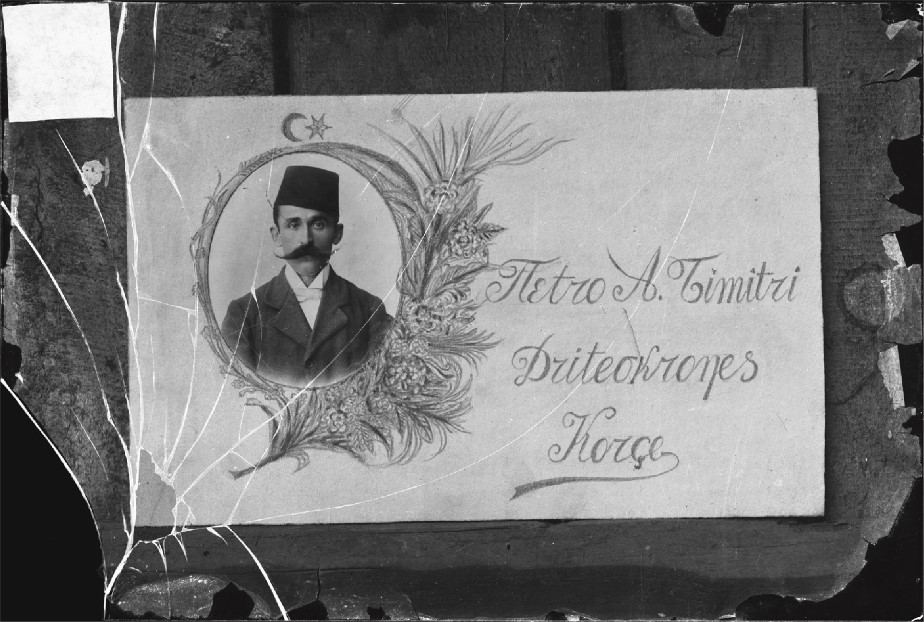 Πetro A. Timitri
Driteσkroŋes
Korçe